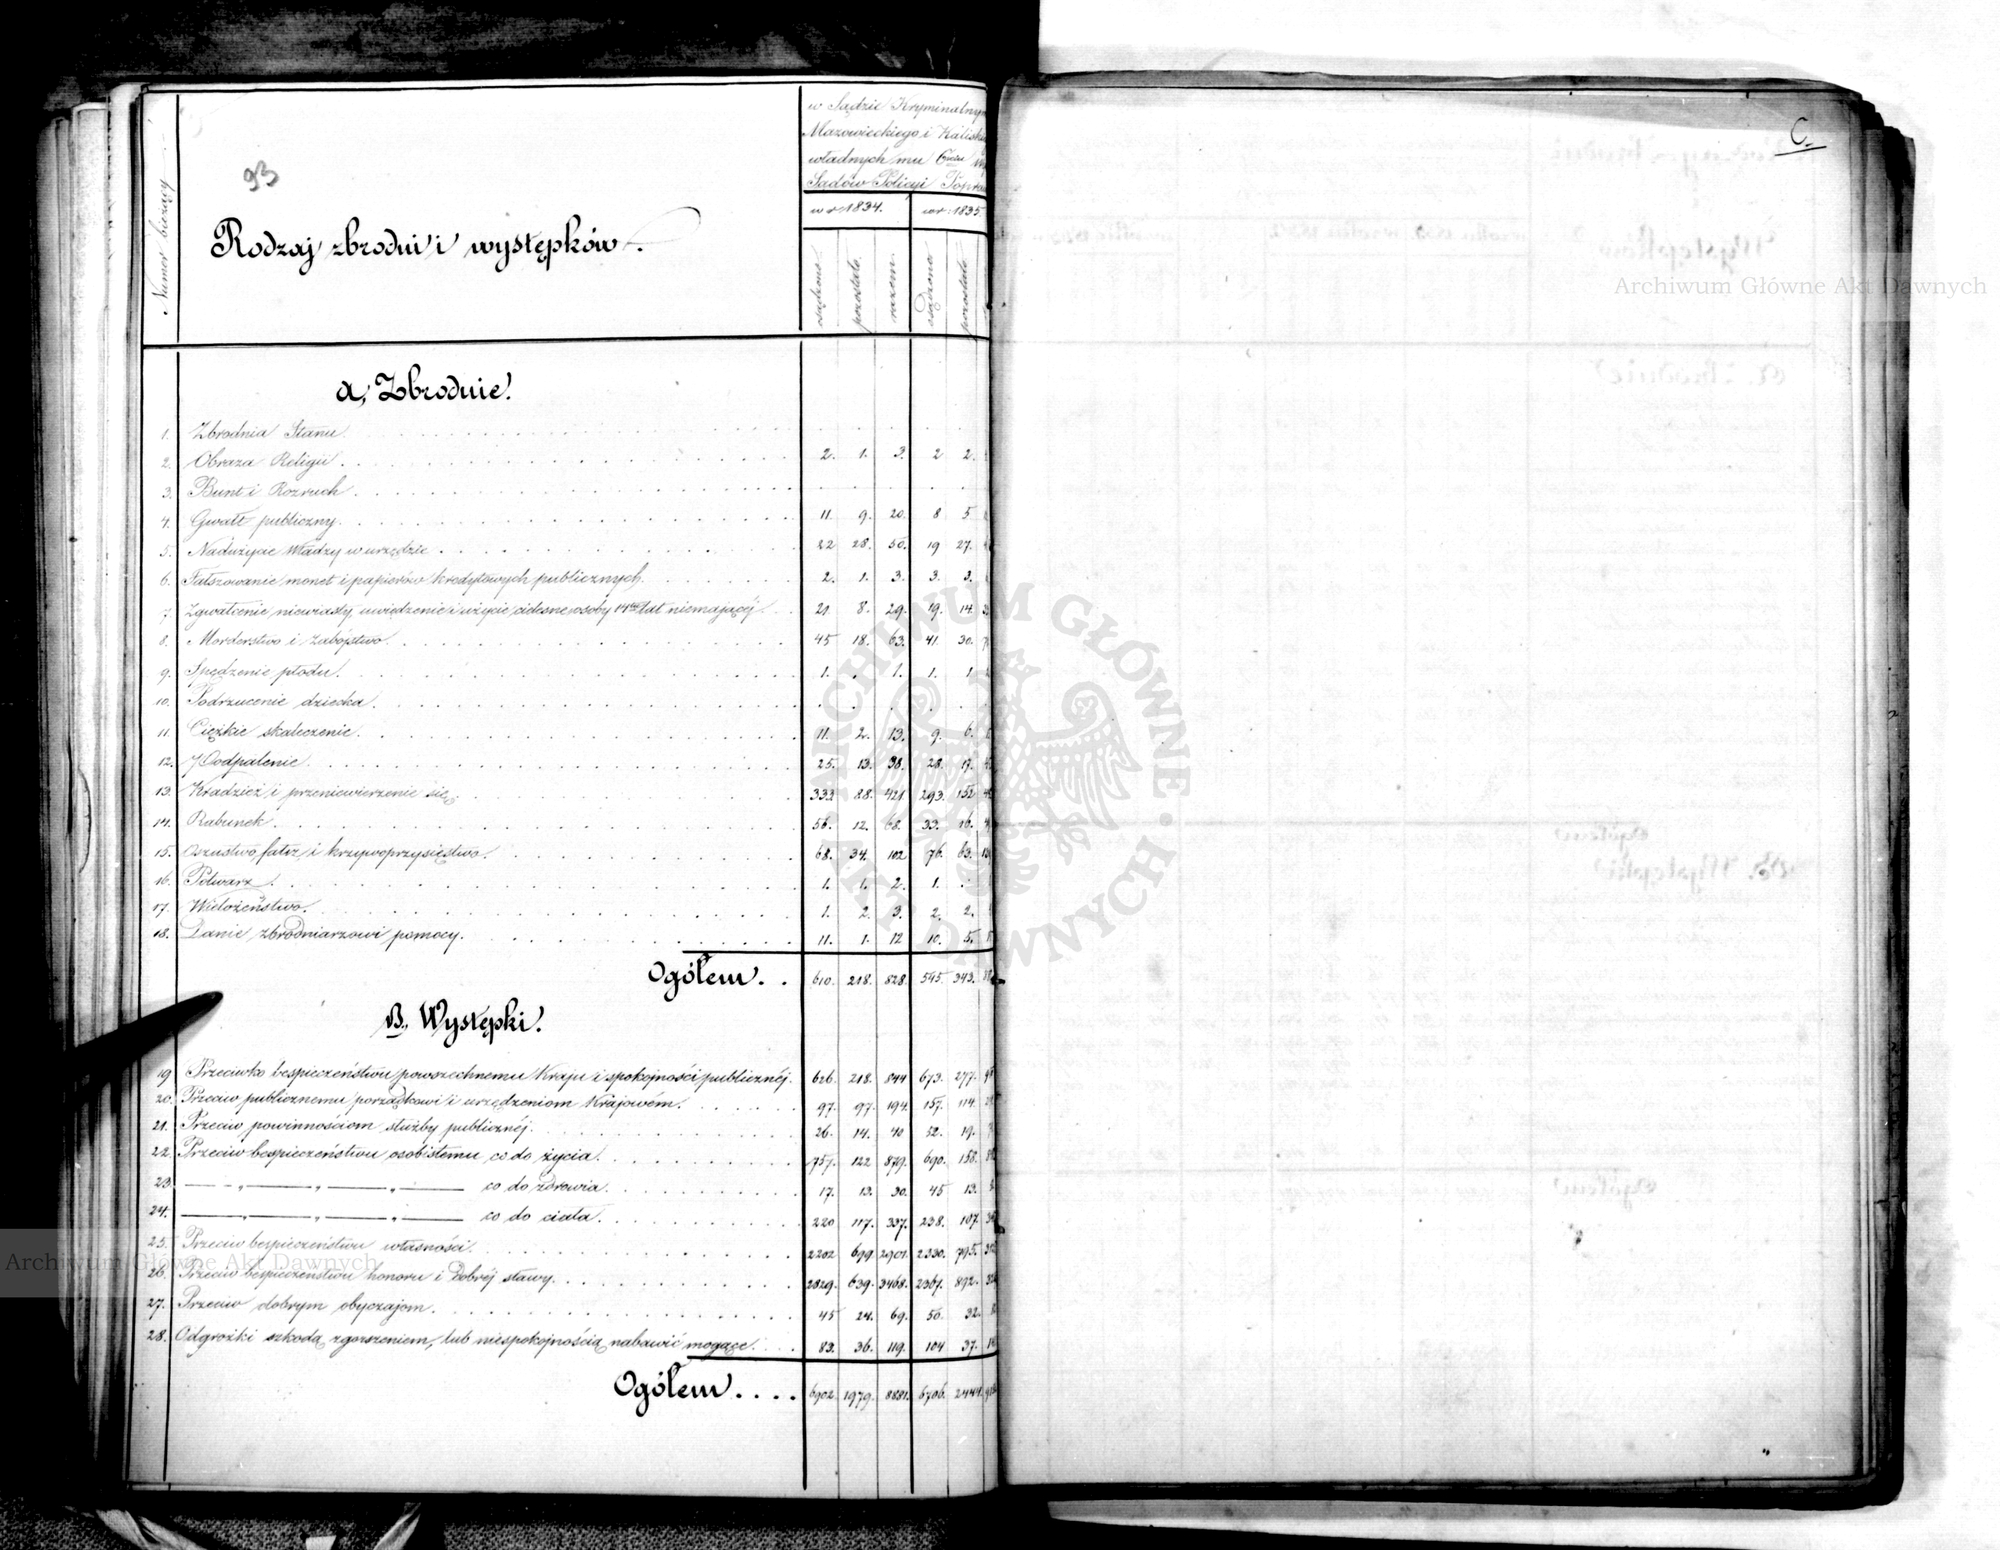 w Sądzie Kryminalnym
Mazowieckiego i Kalisk
władnych mu
Sądów Policyi Popraw
93
Numer bieżący
Rodzaj zbrodni i występków.
w r: 1834. w r: 1835.
osądzono pozostało razem osądzono pozostało
C.
a, Zbrodnie.
1. Zbrodnia Stanu.
2. Obraza Religii. 2. 1. 3. 2 2.
3. Bunt i Rozruch.
4. Gwałt publiczny. 11. 9. 20. 8 5
5. Nadużycie Władzy w urzędzie 22 28. 50. 19 27.
6. Fałszowanie monet i papierów kredytowych publicznych. 2. 1. 3. 3. 3.
7. Zgwałcenie niewiasty, uwiedzenie i użycie cielesne osoby 14tu lat niemającéj. 21. 8. 29. 19. 14.
8. Morderstwo i zabójstwo. 45 18. 63. 41. 30.
9. Spędzenie płodu. 1. . 1. 1. 1
10. Podrzucenie dziecka.
11. Ciężkie skaleczenie. 11. 2. 13. 9. 6.
12. Podpalenie. 25. 13. 38. 28. 17.
13. Kradzież i przeniewierzenie się. 333 88. 421. 293. 152
14. Rabunek. 56. 12. 68. 33. 16.
15. Oszustwo, fałsz i krzywoprzysięstwo. 68. 34. 102 76. 63.
16. Potwarz. 1. 1. 2. 1. .
17. Wielożeństwo. 1. 2. 3. 2. 2.
18. Danie zbrodniarzowi pomocy. 11. 1. 12 10. 5.
Ogółem. . 610. 218. 828. 545. 343.
B. Występki.
19 Przeciwko bezpieczeństwu powszechnemu Kraju i spokojności publicznéj. 626. 218. 844 673. 277.
20. Przeciw publicznemu porządkowi i urządzeniom Krajowém. 97. 97. 194. 157. 114.
21. Przeciw powinnościom służby publicznéj. 26. 14. 40 52. 19.
22. Przeciw bezpieczeństwu osobistemu co do życia. 757. 122 879. 690. 158.
23. — „ — „ — „ — co do zdrowia. 17. 13. 30. 45 13.
24. — „ — „ — „ — co do ciała. 220 117. 337. 238. 107.
25. Przeciw bezpieczeństwu własności. 2202 699 2901. 2330. 795.
26. Przeciw bezpieczeństwu honoru i dobréj sławy. 2829. 639. 3468. 2367. 892.
27. Przeciw dobrym obyczajom. 45 24. 69. 50. 32.
28. Odgróżki szkodą, zgorszeniem, lub niespokojnością nabawić mogące. 83. 36. 119. 104 37.
Ogółem . . . . 6902. 1979. 8881. 6706. 2444.
Archiwum Główne Akt Dawnych
ARCHIWUM GŁÓWNE · AKT DAWNYCH ·
Archiwum Główne Akt Dawnych